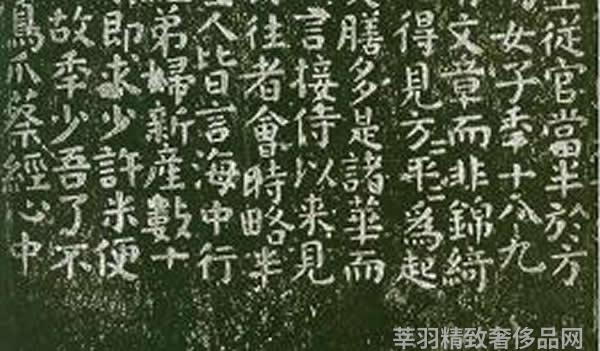 從官當半於方
女子秊十八九
文章而非錦綺
得見方〻平〻為起
膳多是諸華而
言接侍以來見
往者會時畧半
人皆言海中行
弟婦新產數十
即求少許米便
故秊少吾了不
鳥爪蔡經心中
莘羽精致奢侈品网